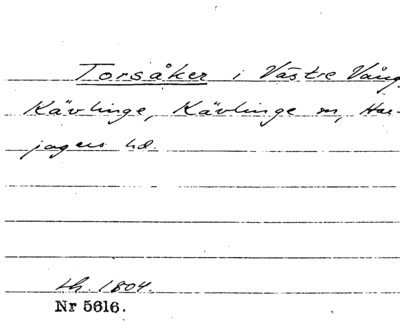 Torsåker i Västre Vång,
Kävlinge, Kävlinge sn, Har-
jagers hd.
Lh. 1804.
Nr 5616.